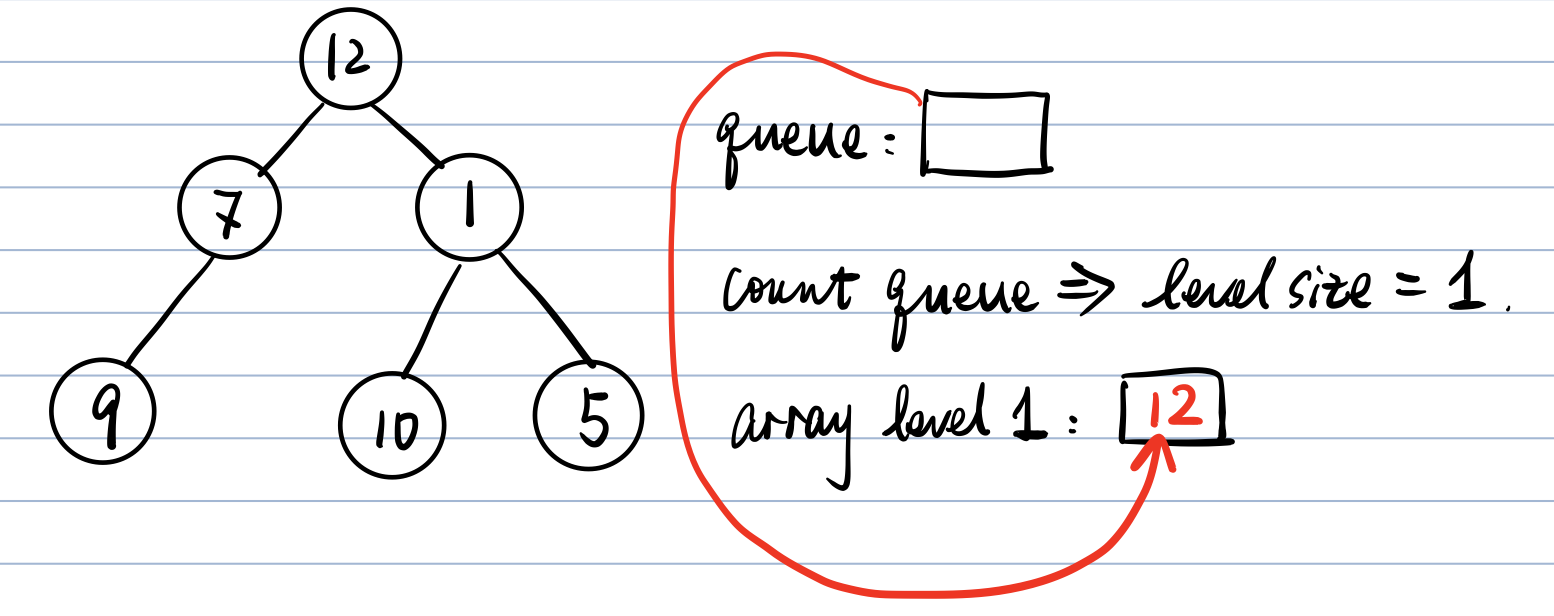 12
7 1
9 10 5
queue:
count queue ⇒ level size = 1.
array level 1: 12